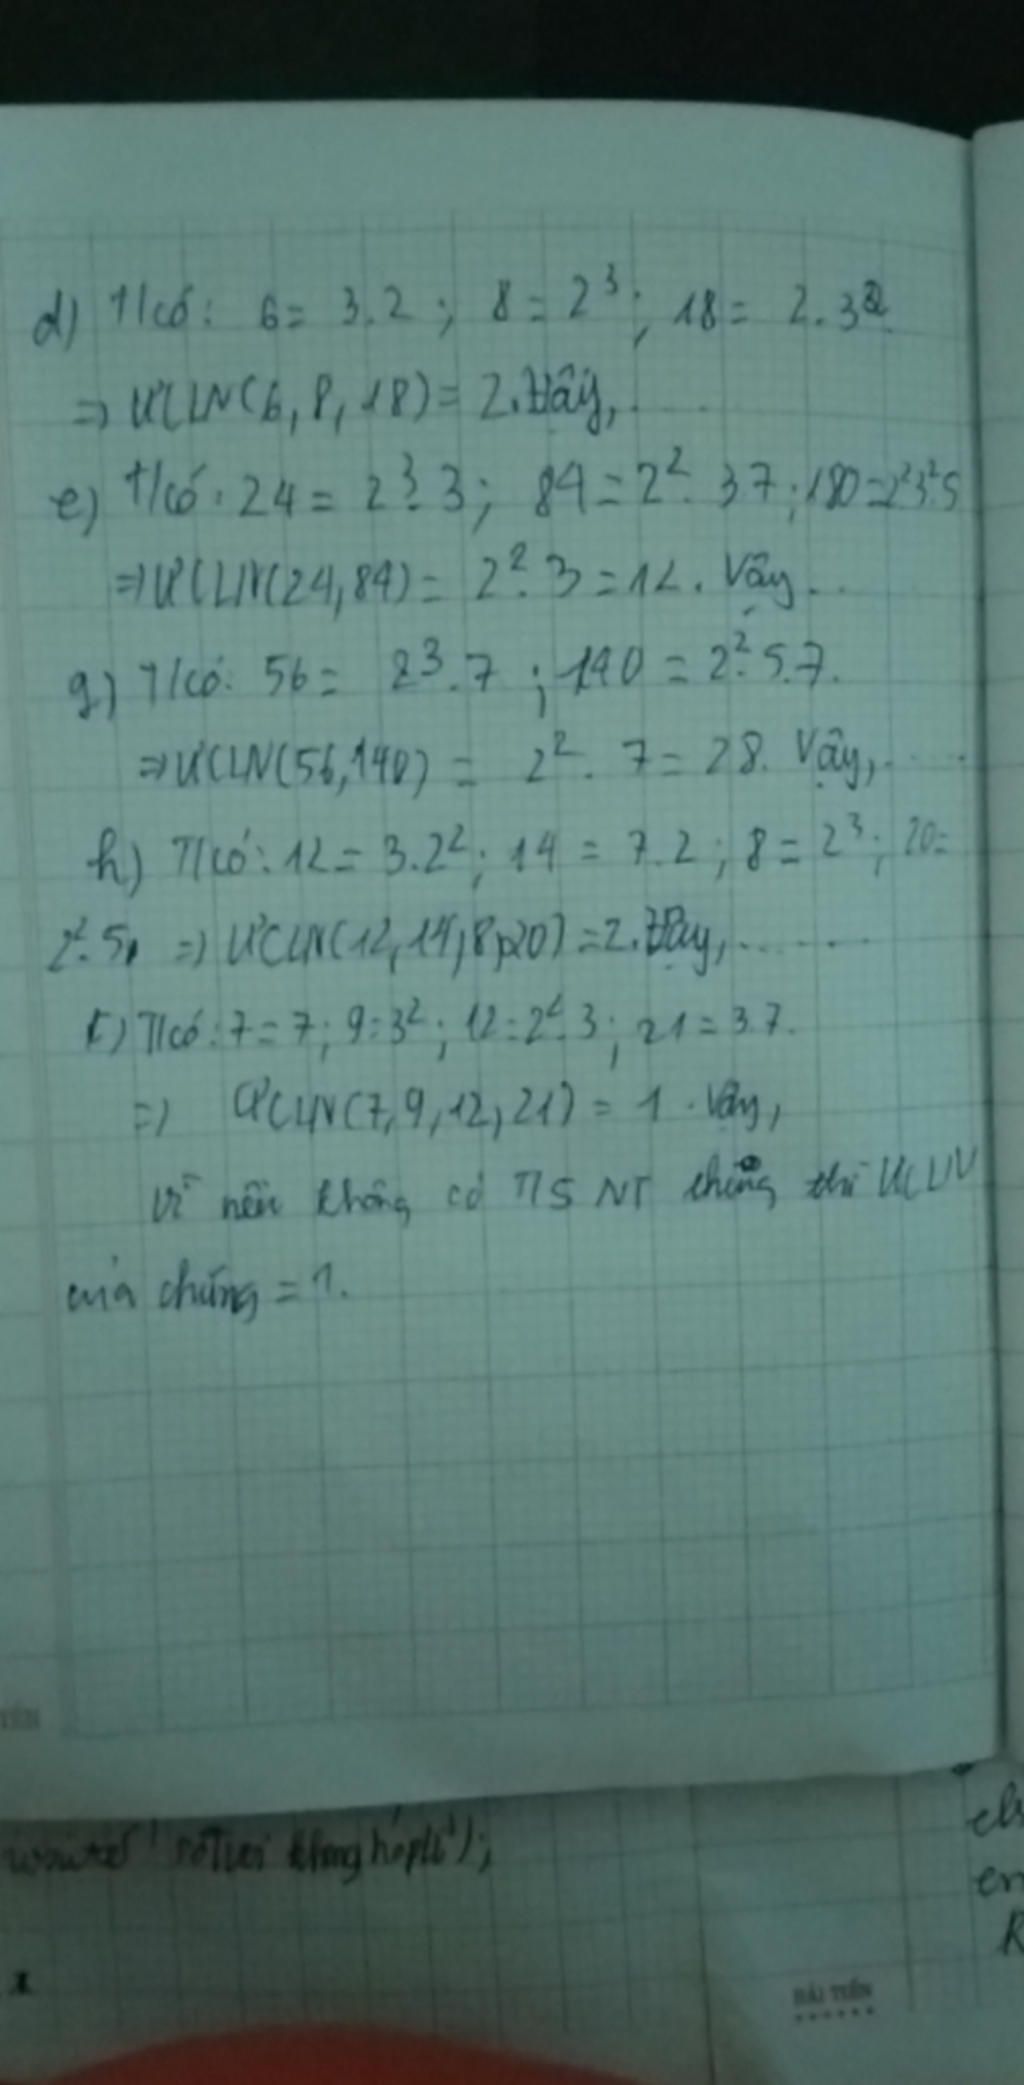 d) T/có: 6 = 3.2 ; 8 = 2³ ; 18 = 2.3²
=> ƯCLN(6, 8, 18) = 2. Vậy, ....
e) T/có: 24 = 2³.3 ; 84 = 2².3.7 ; 180 = 2².3².5
=> ƯCLN(24, 84) = 2².3 = 12. Vậy ...
g) T/có: 56 = 2³.7 ; 140 = 2².5.7.
=> ƯCLN(56, 140) = 2².7 = 28. Vậy, .....
h) T/có: 12 = 3.2² ; 14 = 7.2 ; 8 = 2³ ; 20 =
2².5, => ƯCLN(12, 14, 8, 20) = 2. Vậy, ......
T/có: 7 = 7 ; 9 = 3² ; 12 = 2².3 ; 21 = 3.7.
=> ƯCLN(7, 9, 12, 21) = 1. Vậy,
Vì nếu không có TSNT chung thì ƯCLN
của chúng = 1.
không hợp lệ');
HẢI TIẾN